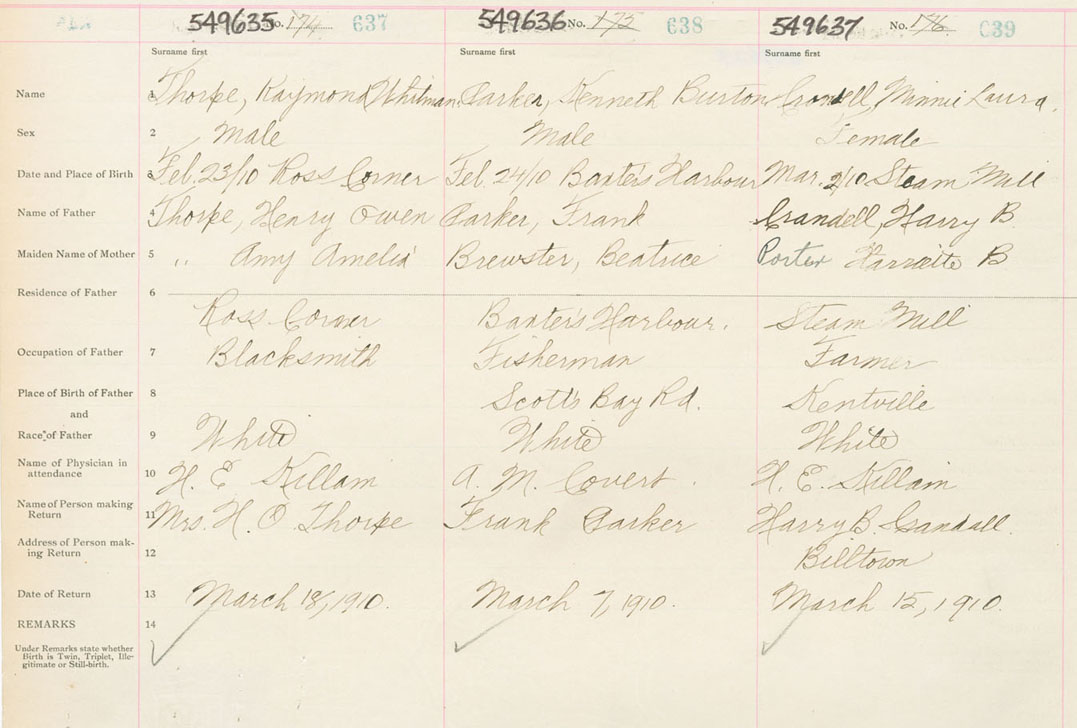 549635 No. 174 637 549636 No. 175 638 549637 No. 176 639
Surname first Surname first Surname first
Name 1 Thorpe, Raymond Whitman Parker, Kenneth Burton Crandell, Minnie Laura.
Sex 2 Male Male Female
Date and Place of Birth 3 Feb. 23/10 Ross Corner Feb. 24/10 Baxter's Harbour Mar. 2/10 Steam Mill
Name of Father 4 Thorpe, Henry Owen Parker, Frank Crandell, Harry B.
Maiden Name of Mother 5 " Amy Amelia Brewster, Beatrice Porter Harriette B
Residence of Father 6
Ross Corner Baxter's Harbour. Steam Mill
Occupation of Father 7 Blacksmith Fisherman Farmer
Place of Birth of Father 8 Scotts Bay Rd. Kentville
and
Race of Father 9 White White White
Name of Physician in
attendance 10 H. E. Killam A. M. Covert. H. E. Killam
Name of Person making
Return 11 Mrs. H. O. Thorpe Frank Parker Harry B. Crandall.
Address of Person mak-
ing Return 12 Billtown
Date of Return 13 March 18, 1910. March 7, 1910. March 15, 1910.
REMARKS 14
Under Remarks state whether
Birth is Twin, Triplet, Ille-
gitimate or Still-birth.